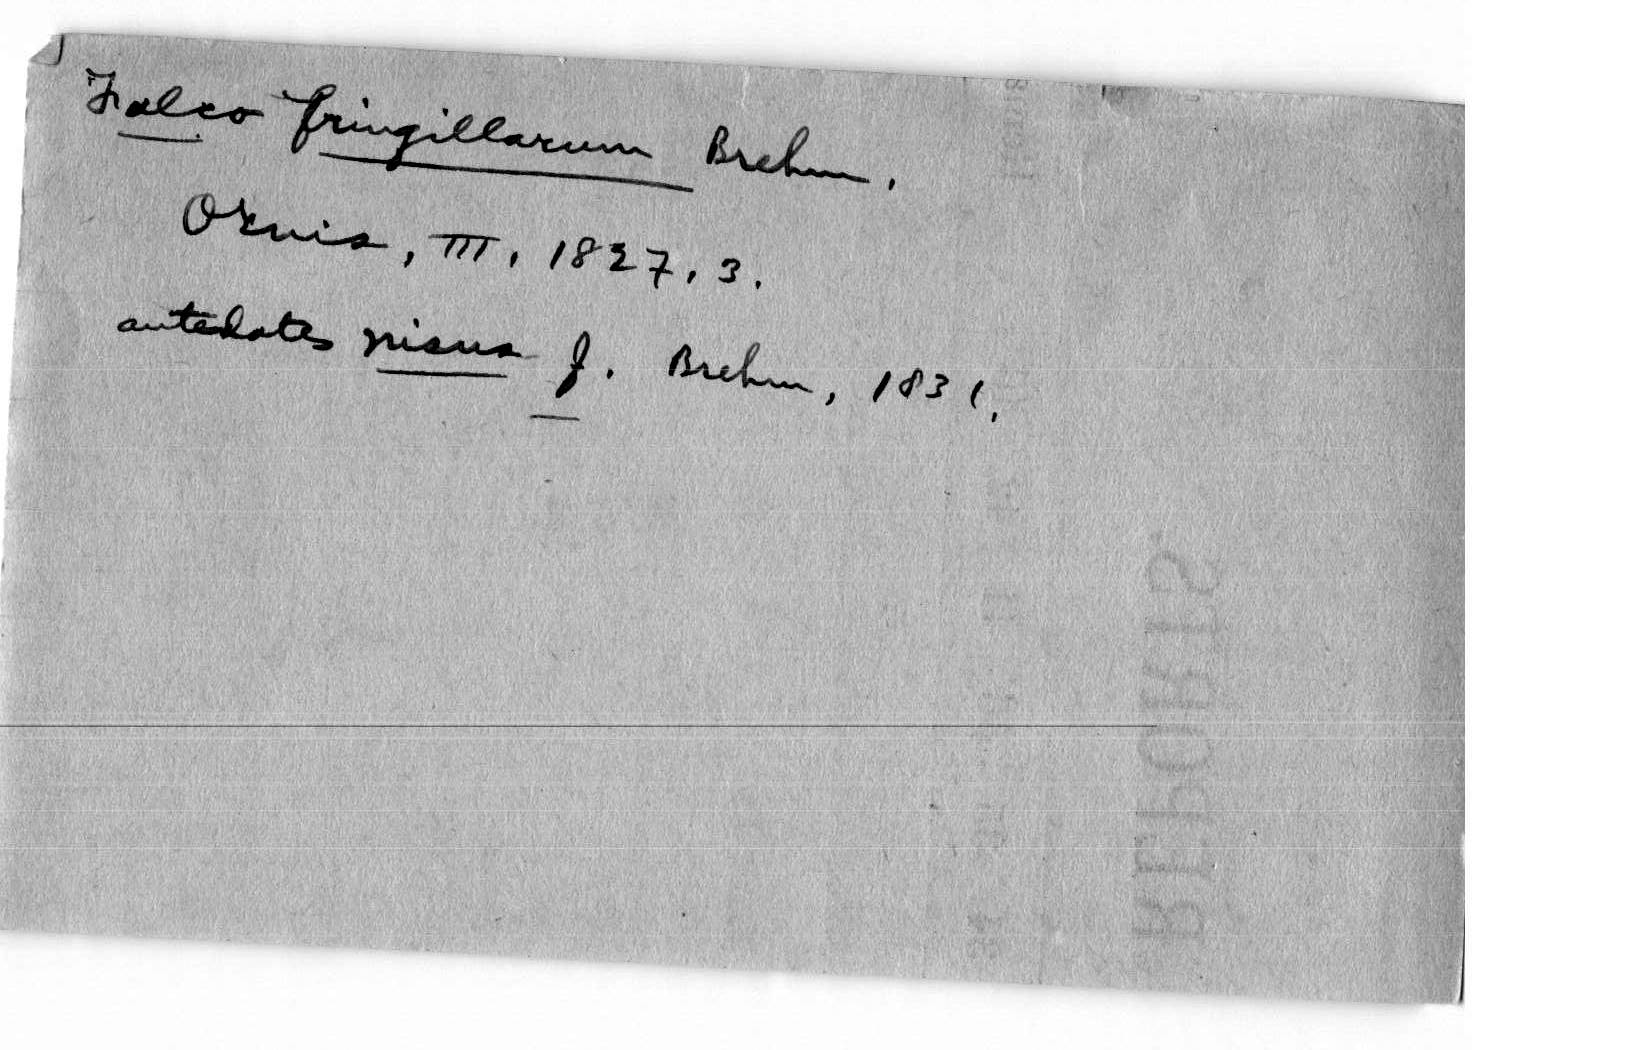 Falco fringillarum Brehm.
Ornis, III, 1827, 3.
antedates nisus f. Brehm, 1831.
REPORTS